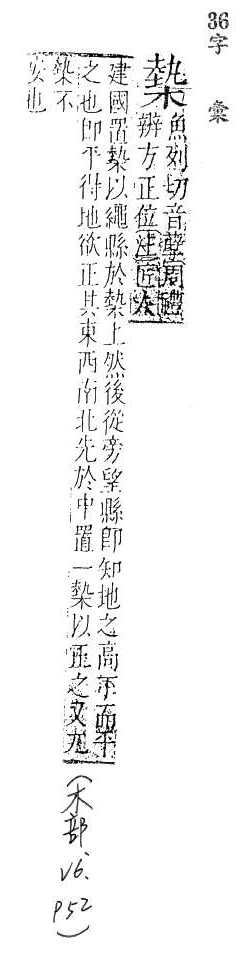 36
字彙
槷
魚列切音孽周禮
辨方正位注匠人
建國置槷以繩縣於槷上然後從旁望縣即知地之高下而平
之也即平得地欲正其東西南北先於中置一槷以正之又
槷不
安也
(木部、V6、P52)